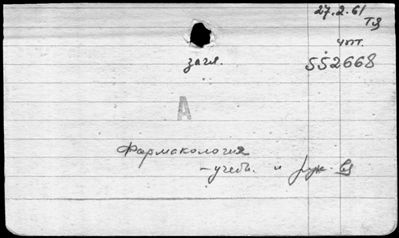 27.2.61
ТЗ
чит.
загл. 552668
А
Фармакология
– учебн. и рук.